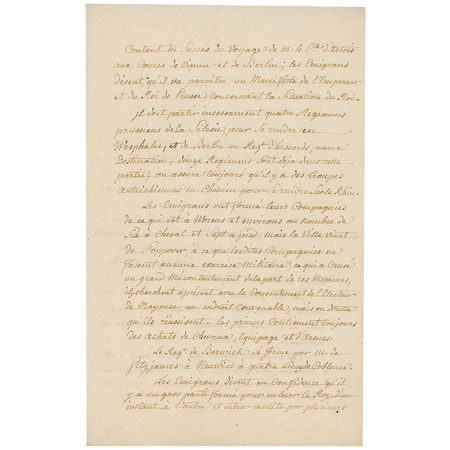 Contant du Succes du Voyage de m. le Cte. d'Artois
aux Coures de Vienne, et de Berlin; les Emigrans
disent, qu'il va paroître un Manifeste de l'Empereur
et du Roi de Prusse, concernant la Situation du Roi.
il doit partir incessament quatre Regimens
prussiens de la Silesie, pour Se rendre en
Wesphalie, et de Berlin un Regt. d'hussards, meme
Destination; douze Regimens Sont deja dans cette
partie; on assure toujours qu'il y a des Troupes
autrichiennes en Chemin pour Se rendre Sur le Rhin.
Les Emigrans ont formé leurs Compagnies
de ce qui est à Worms et environs au Nombre de
Six à Cheval et Sept a pied, mais la Ville vient
de S'opposer, à ce que lesdites Compagnies ne
fassent aucune exercice Militaire, ce qui a Causé
un grand Mécontentement de la part de ces Messieurs,
ils cherchent apresent, avec le Consentement de l'Electeur
de Mayence un endroit Convenable, mais on doute
qu'ils réussisent. les princes Continuent toujours
des achats de Chevaux, Equipage et d'Armes.
Le Regt. de Berwick Se forme par m. de
fitzjames à Neuwied a quatre Lieux de Coblence.
Les Emigrans disent en Confidence qu'il
y a un gros parti formé pour enlever le Roy, d'un
instant à l'autre et entrer ensuite par plusieurs